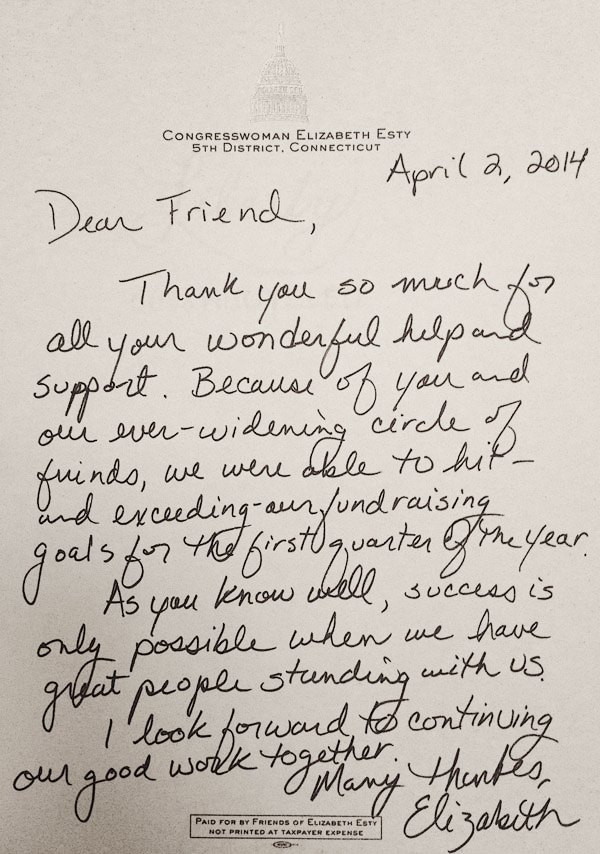 CONGRESSWOMAN ELIZABETH ESTY
5TH DISTRICT, CONNECTICUT
April 2, 2014
Dear Friend,
Thank you so much for
all your wonderful help and
support. Because of you and
our ever-widening circle of
friends, we were able to hit –
and exceeding – our fundraising
goals for the first quarter of the year.
As you know well, success is
only possible when we have
great people standing with us.
I look forward to continuing
our good work together.
Many thanks,
Elizabeth
PAID FOR BY FRIENDS OF ELIZABETH ESTY
NOT PRINTED AT TAXPAYER EXPENSE